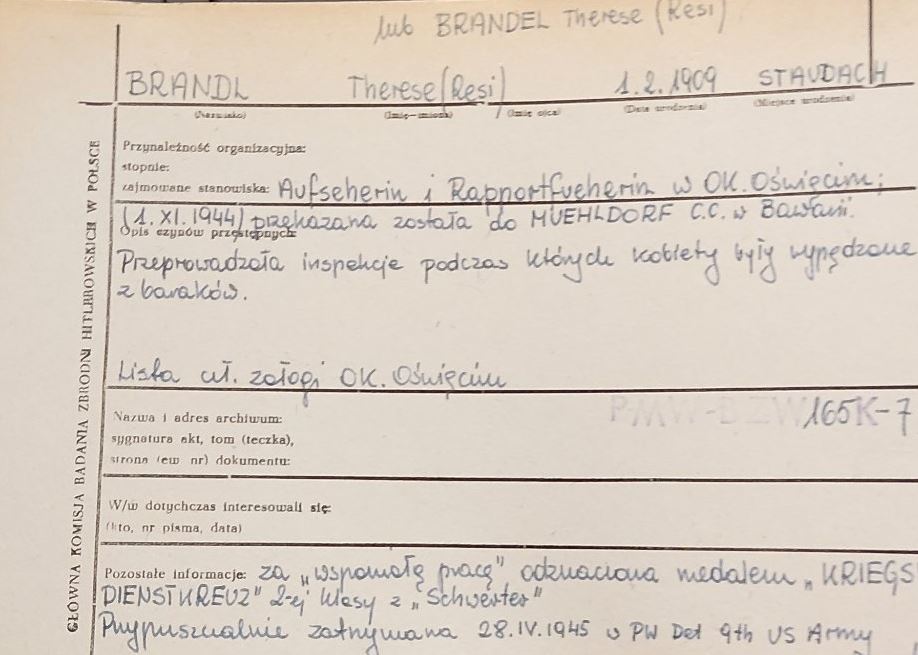 lub BRANDEL Therese (Resi)
BRANDL Therese (Resi) 1.2.1909 STAUDACH
(Nazwisko) (Imię-imiona) (Imię ojca) (Data urodzenia) (Miejsce urodzenia)
GŁÓWNA KOMISJA BADANIA ZBRODNI HITLEROWSKICH W POLSCE
Przynależność organizacyjna:
stopnie:
zajmowane stanowiska: Aufseherin i Rapportfueherin w OK. Oświęcim;
(1. XI. 1944) przekazana została do MUEHLDORF C.C. w Bawarii.
Opis czynów przestępnych:
Przeprowadzała inspekcje podczas których kobiety były wypędzane
z baraków.
Lista czł. załogi OK. Oświęcim
Nazwa i adres archiwum: PMW-BZW 165K-7
sygnatura akt, tom (teczka),
strona (ew nr) dokumentu:
W/w dotychczas interesowali się:
(kto, nr pisma, data)
Pozostałe informacje: za „wspaniałą pracę" odznaczona medalem „KRIEGS
DIENSTKREUZ" 2-ej klasy z „Schwerter"
Przypuszczalnie zatrzymana 28.IV.1945 w PW Det 9th US Army